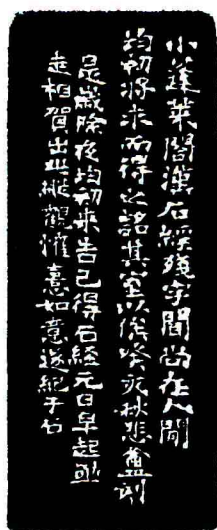 小蓬萊閣漢石經殘字聞尚在人間
均初將求而得之銘其室以俟癸亥秋悲盦刻
是歲除夜均初來告已得石經元日早起亟
走相賀出此縱觀懽憙如意遂紀于石